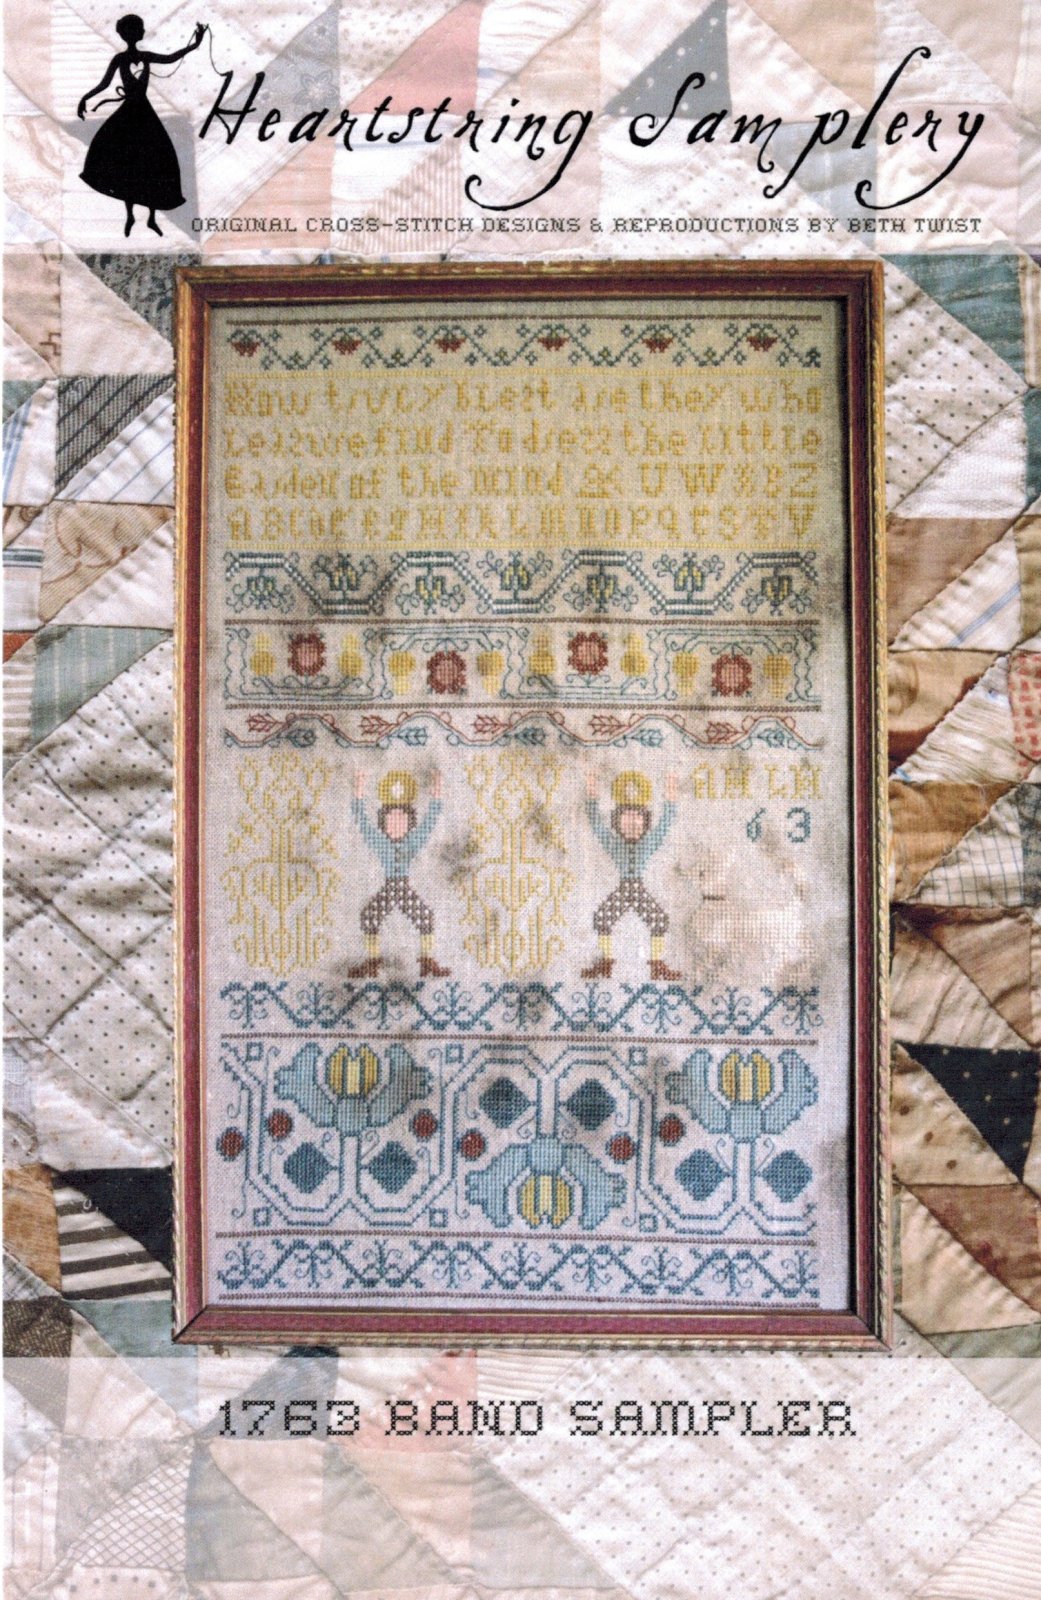 Heartstring Samplery
ORIGINAL CROSS-STITCH DESIGNS & REPRODUCTIONS BY BETH TWIST
How truly blest are they who
Leisure find To dress the little
of the mind & U W X Z
A B C D E F G H I K L M N O P Q R S T V
A H L H
6 3
1763 BAND SAMPLER